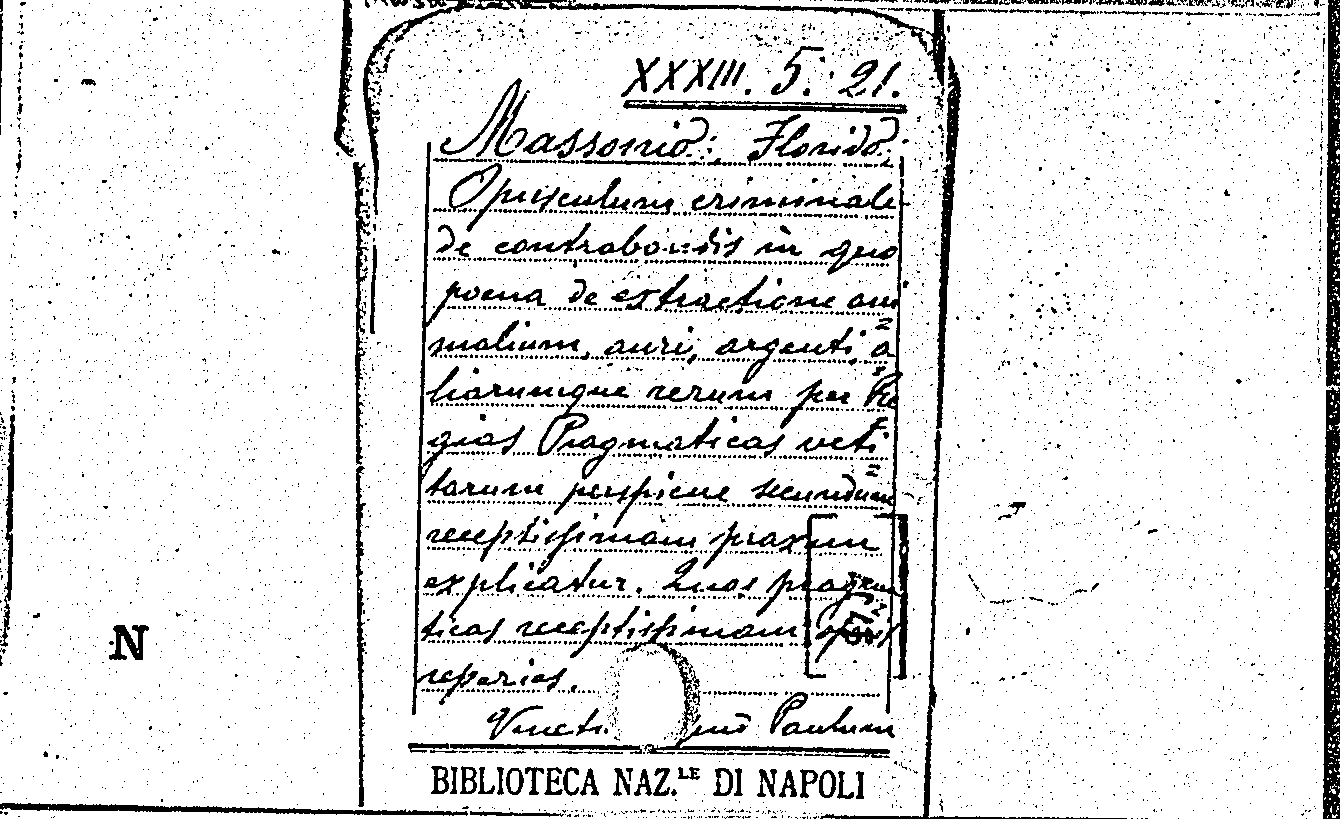 XXXIII. 5. 21.
Massonio, Florido,
Opusculum criminale
de contrabondis in quo
poena de extractione ani
malium, auri, argenti, a
liarumque rerum per Re
gias Pragmaticas veti
tarum perspicue secundum
receptissimam praxim
explicatur. Quas pragma
ticas receptissimam
reperies.
Paulum
BIBLIOTECA NAZ.LE DI NAPOLI
N